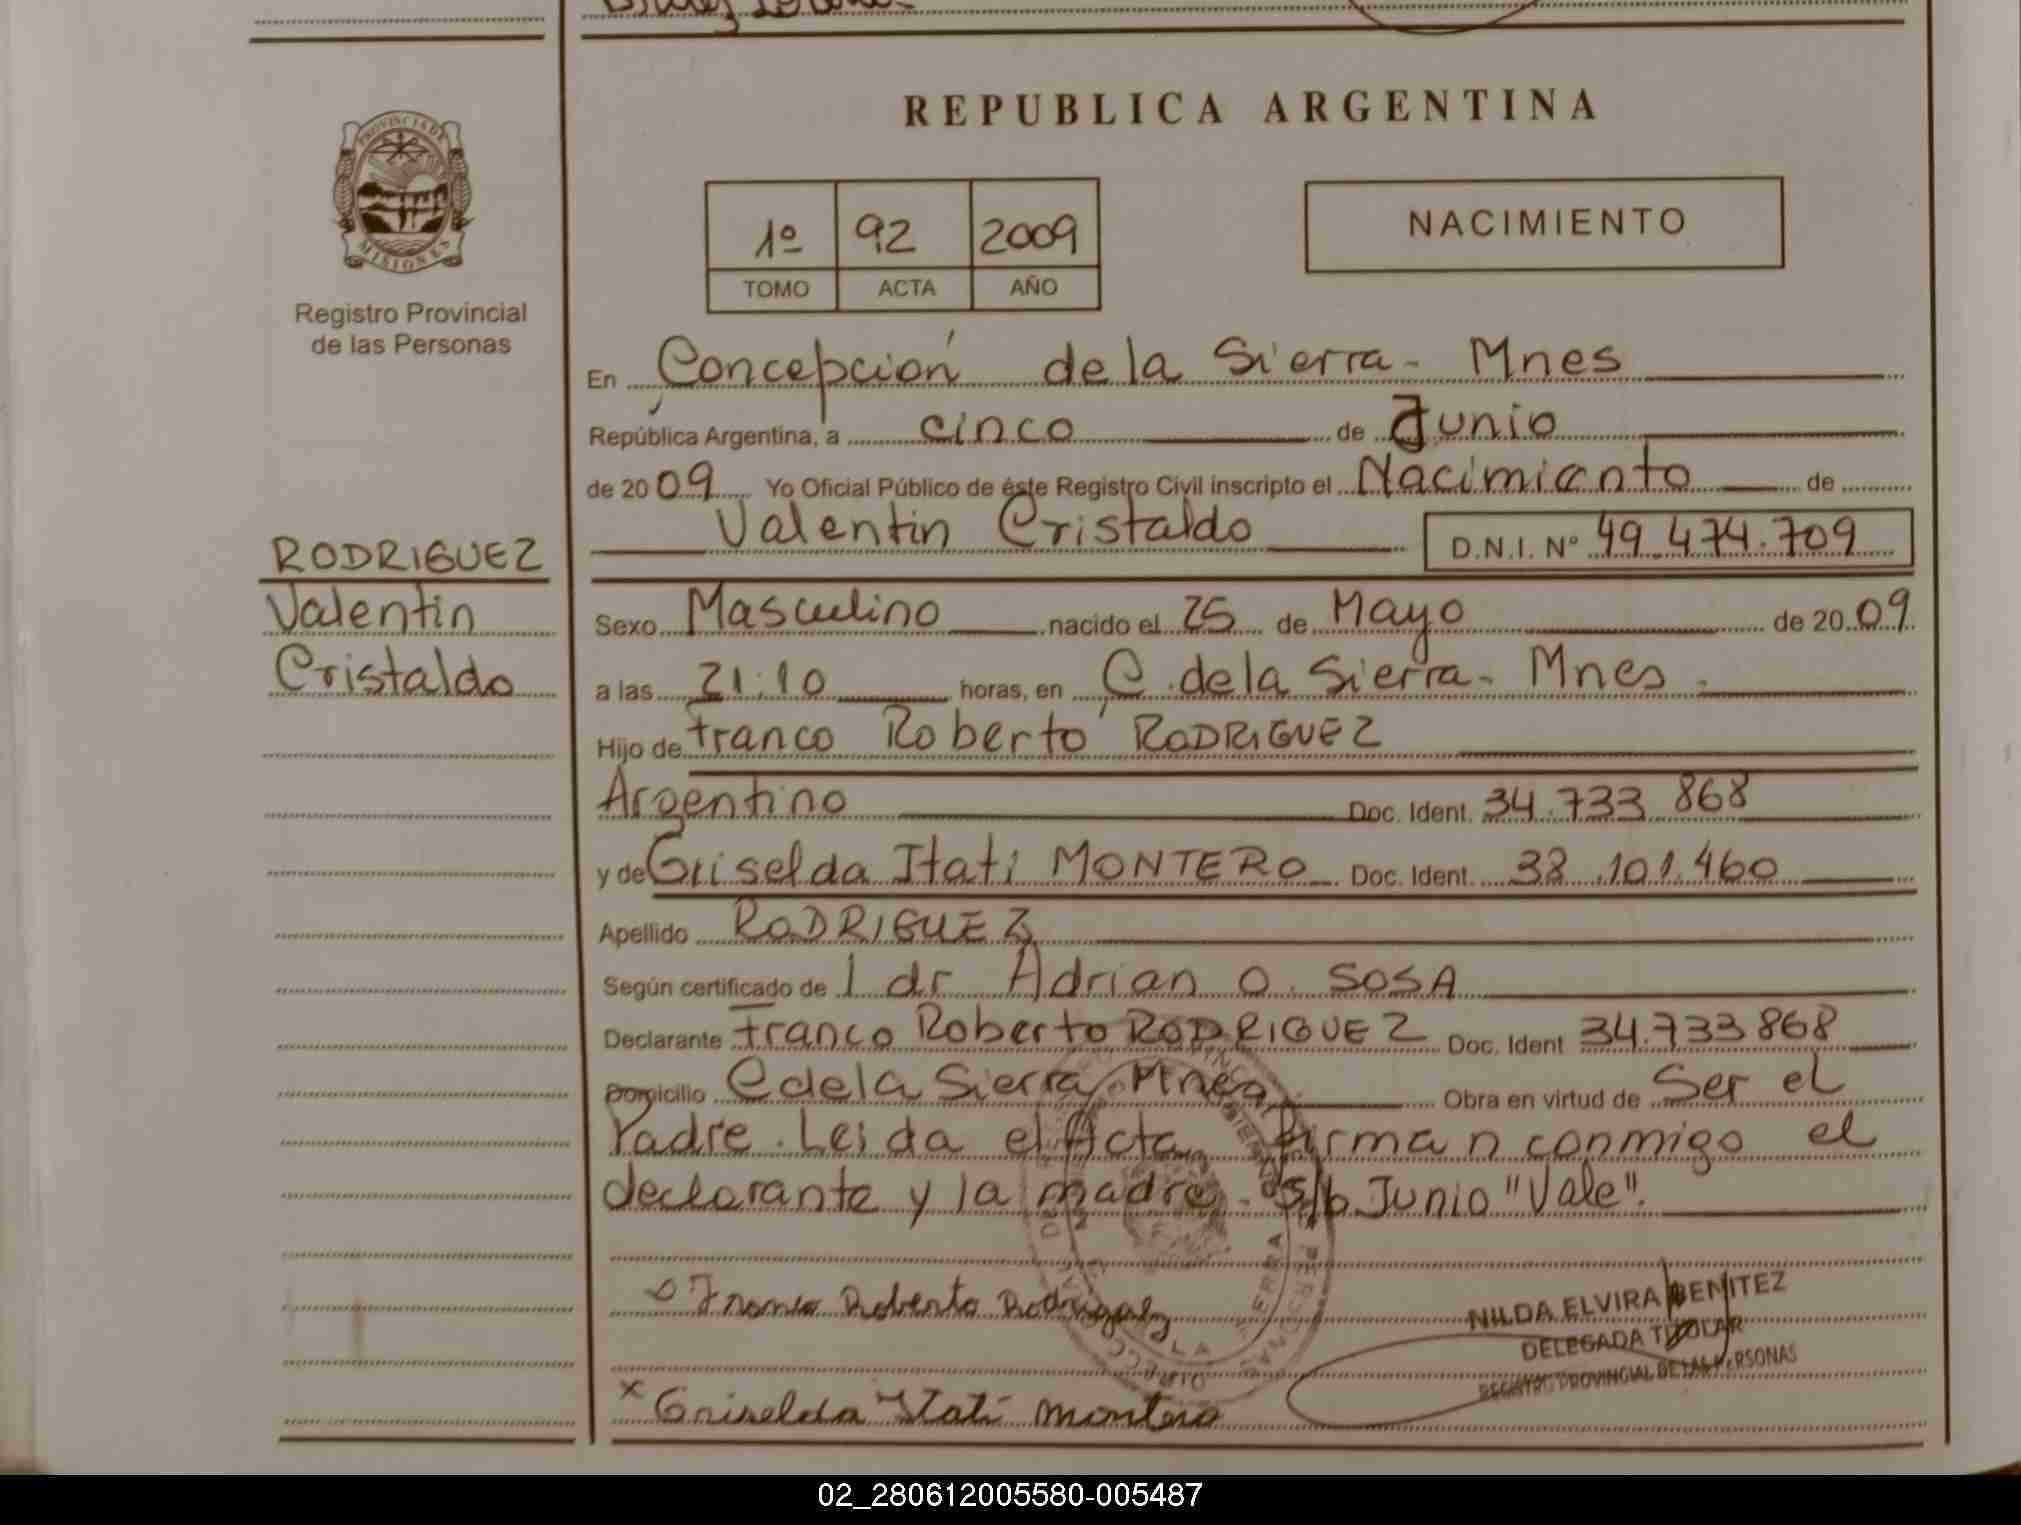 REPUBLICA ARGENTINA
PROVINCIA DE
MISIONES
Registro Provincial
de las Personas
1º 92 2009
TOMO ACTA AÑO
NACIMIENTO
En Concepción de la Sierra - Mnes
República Argentina, a cinco de Junio
de 2009 Yo Oficial Público de éste Registro Civil inscripto el Nacimianto de
Valentin Cristaldo D.N.I. Nº 49.474.709
RODRIGUEZ
Valentin
Cristaldo
Sexo Masculino nacido el 25 de Mayo de 2009
a las 21:10 horas, en C. de la Sierra - Mnes.
Hijo de Franco Roberto RODRIGUEZ
Argentino Doc. Ident. 34.733 868
y de Griselda Itati MONTERO Doc. Ident. 38.101.460
Apellido RODRIGUEZ
Según certificado de l dr Adrian O. SOSA
Declarante Franco Roberto RODRIGUEZ Doc. Ident 34.733868
Domicilio C de la Sierra Mnes Obra en virtud de Ser el
Padre. Leida el Acta firman conmigo el
declarante y la madre. S/b Junio "Vale".
Franco Roberto Rodriguez
NILDA ELVIRA BENITEZ
DELEGADA TITULAR
REGISTRO PROVINCIAL DE LAS PERSONAS
x Griselda Itatí Montero
02_280612005580-005487